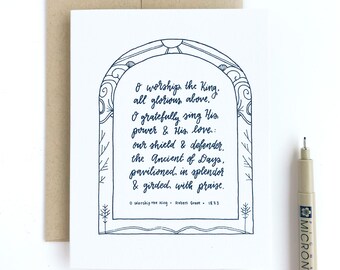 O worship the King,
all glorious above,
O gratefully sing His
power & His love:
our shield & defender,
the Ancient of Days,
pavilioned in splendor
& girded with praise.
O Worship the King • Robert Grant • 1833
MICRON